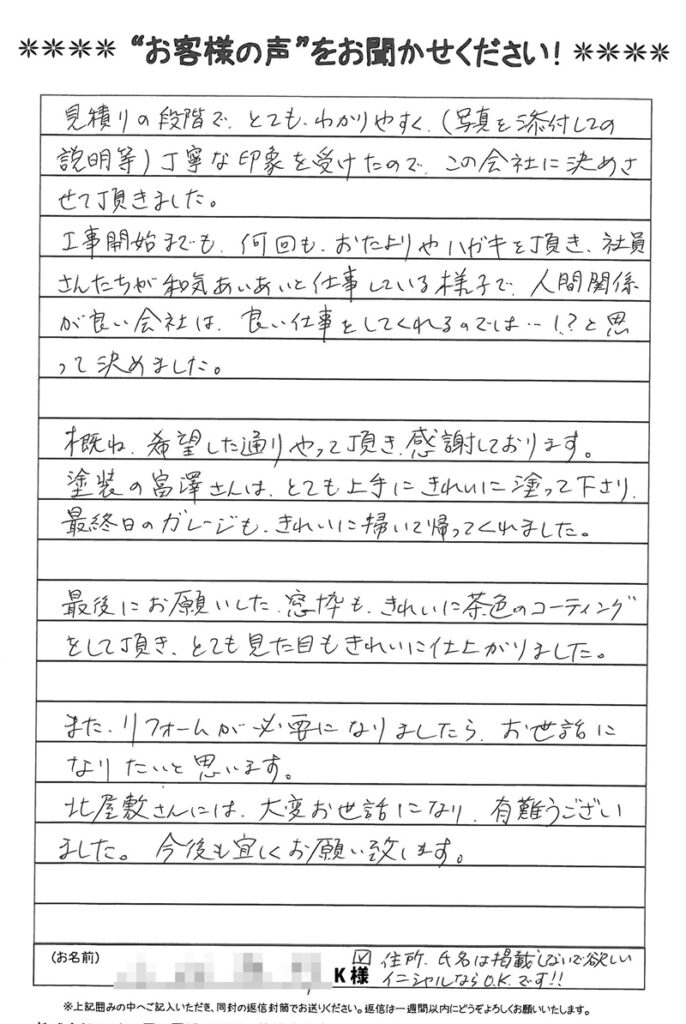 ＊＊＊＊“お客様の声”をお聞かせください！＊＊＊＊
見積りの段階で、とても、わかりやすく、（写真を添付しての
説明等）丁寧な印象を受けたので、この会社に決めさ
せて頂きました。
工事開始までも、何回も、おたよりやハガキを頂き、社員
さんたちが和気あいあいと仕事している様子で、人間関係
が良い会社は、良い仕事をしてくれるのでは…！？と思
って決めました。
概ね、希望した通りやって頂き、感謝しております。
塗装の富澤さんは、とても上手にきれいに塗って下さり、
最終日のガレージも、きれいに掃いて帰ってくれました。
最後にお願いした、窓枠も、きれいに茶色のコーティング
をして頂き、とても見た目もきれいに仕上がりました。
また、リフォームが必要になりましたら、お世話に
なりたいと思います。
北屋敷さんには、大変お世話になり、有難うござい
ました。今後も宜しくお願い致します。
（お名前）
K様
☑ 住所、氏名は掲載しないで欲しい
イニシャルならO.K.です!!
※上記囲みの中へご記入いただき、同封の返信封筒でお送りください。返信は一週間以内にどうぞよろしくお願いいたします。